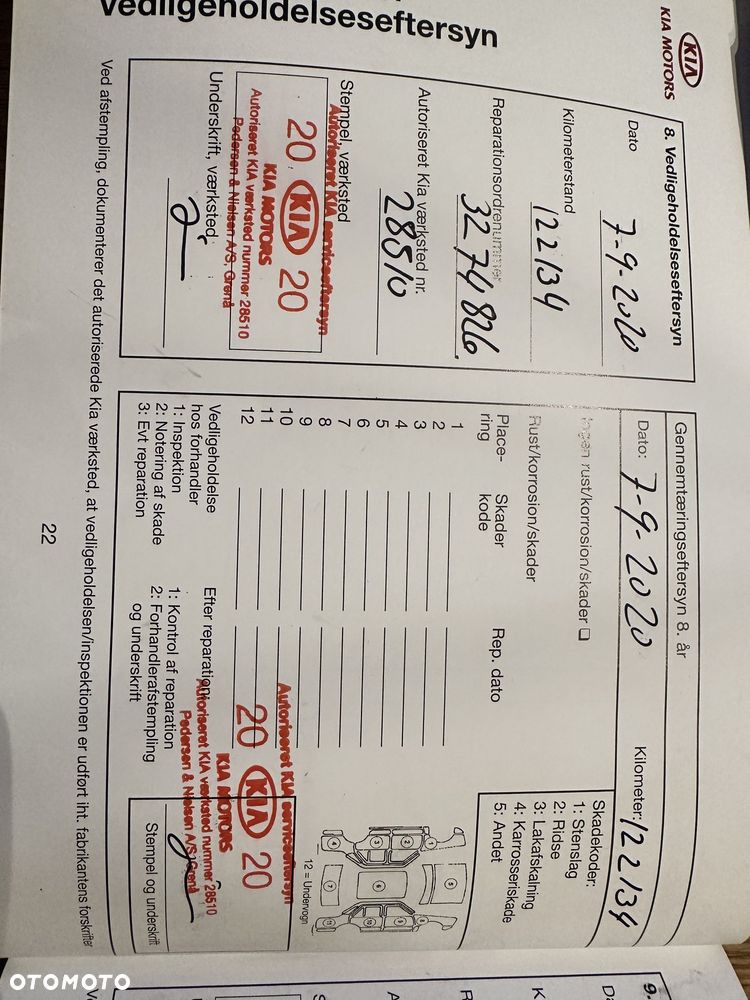 Vedligeholdelseseftersyn
KIA
KIA MOTORS
8. Vedligeholdelseseftersyn
Dato 7-9-2020
Kilometerstand 122134
Reparationsordrenummer 3274826
Autoriseret Kia værksted nr. 28510
Stempel, værksted
Autoriseret KIA serviceeftersyn
20 KIA 20
KIA MOTORS
Autoriseret KIA værksted nummer 28510
Pedersen & Nielsen A/S, Grenå
Underskrift, værksted
Gennemtæringseftersyn 8. år
Dato: 7-9-2020 Kilometer: 122134
Ingen rust/korrosion/skader
Rust/korrosion/skader
Place-ring Skader kode Rep. dato
1
2
3
4
5
6
7
8
9
10
11
12
Skadekoder:
1: Stenslag
2: Ridse
3: Lakafskalning
4: Karrosseriskade
5: Andet
12 = Undervogn
Vedligeholdelse
hos forhandler
1: Inspektion
2: Notering af skade
3: Evt reparation
Efter reparation
1: Kontrol af reparation
2: Forhandlerafstempling
og underskrift
Autoriseret KIA serviceeftersyn
20 KIA 20
KIA MOTORS
Autoriseret KIA værksted nummer 28510
Pedersen & Nielsen A/S, Grenå
Stempel og underskrift
Ved afstempling, dokumenterer det autoriserede Kia værksted, at vedligeholdelsen/inspektionen er udført iht. fabrikantens forskrifter
22
9.
OTOMOTO